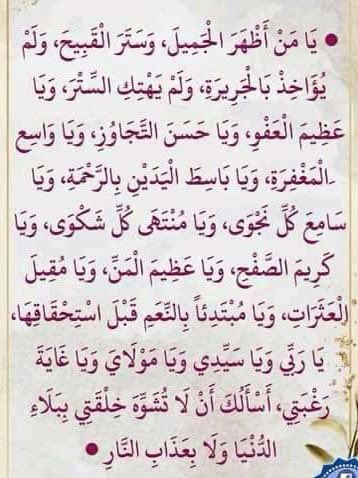 • يَا مَنْ أَظْهَرَ الْجَمِيلَ، وَسَتَرَ الْقَبِيحَ، وَلَمْ
يُؤَاخِذْ بَالْجَرِيرَةِ، وَلَمْ يَهْتِكِ السِّتْرَ، وَيَا
عَظِيمَ الْعَفْوِ، وَيَا حَسَنَ التَّجَاوُزِ، وَيَا وَاسِعِ
الْمَغْفِرَةِ، وَيَا بَاسِطَ الْيَدَيْنِ بِالرَّحْمَةِ، وَيَا
سَامِعَ كُلِّ نَجْوَى، وَيَا مُنْتَهَى كُلِّ شَكْوَى، وَيَا
كَرِيمَ الصَّفْحِ، وَيَا عَظِيمَ الْمَنِّ، وَيَا مُقِيلَ
الْعَثَرَاتِ، وَيَا مُبْتَدِئاً بِالنِّعَمِ قَبْلَ اسْتِحْقَاقِهَا،
يَا رَبِّي وَيَا سَيِّدِي وَيَا مَوْلَايَ وَيَا غَايَةَ
رَغْبَتِي، أَسْأَلُكَ أَنْ لَا تُشَوِّهَ خِلْقَتِي بِبَلَاءِ
الدُّنْيَا وَلَا بِعَذَابِ النَّارِ •